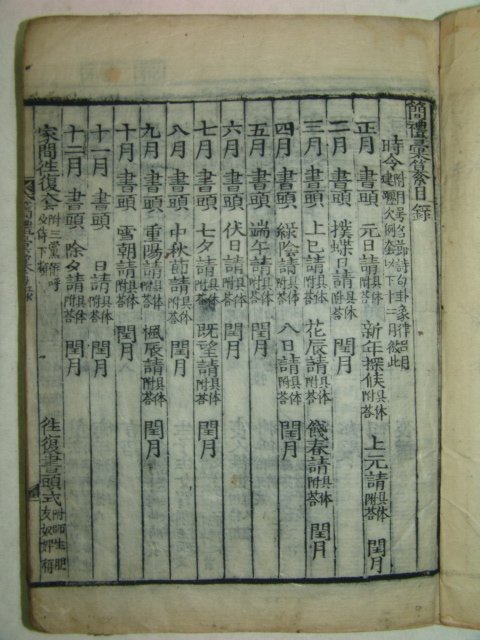 簡禮彙纂目錄
時令
正月 書頭 元日請具体附答 新年探候具体附答 上元請具体附答 閏月
二月 書頭 撲蝶日請具体附答 閏月
三月 書頭 上巳請具体附答 花辰請具体附答 餞春請具体附答 閏月
四月 書頭 綠陰請具体附答 八日請具体附答 閏月
五月 書頭 端午請具体附答 閏月
六月 書頭 伏日請具体附答 閏月
七月 書頭 七夕請具体附答 既望請具体附答 閏月
八月 書頭 中秋節請具体附答 閏月
九月 書頭 重陽請具体附答 楓辰請具体附答 閏月
十月 書頭 雪朝請具体附答 閏月
十一月 書頭 日請具体附答 閏月
十二月 書頭 除夕請具体附答 閏月
家間徃復 附三黨稱呼 徃復書頭式 附師生 友奴婢稱